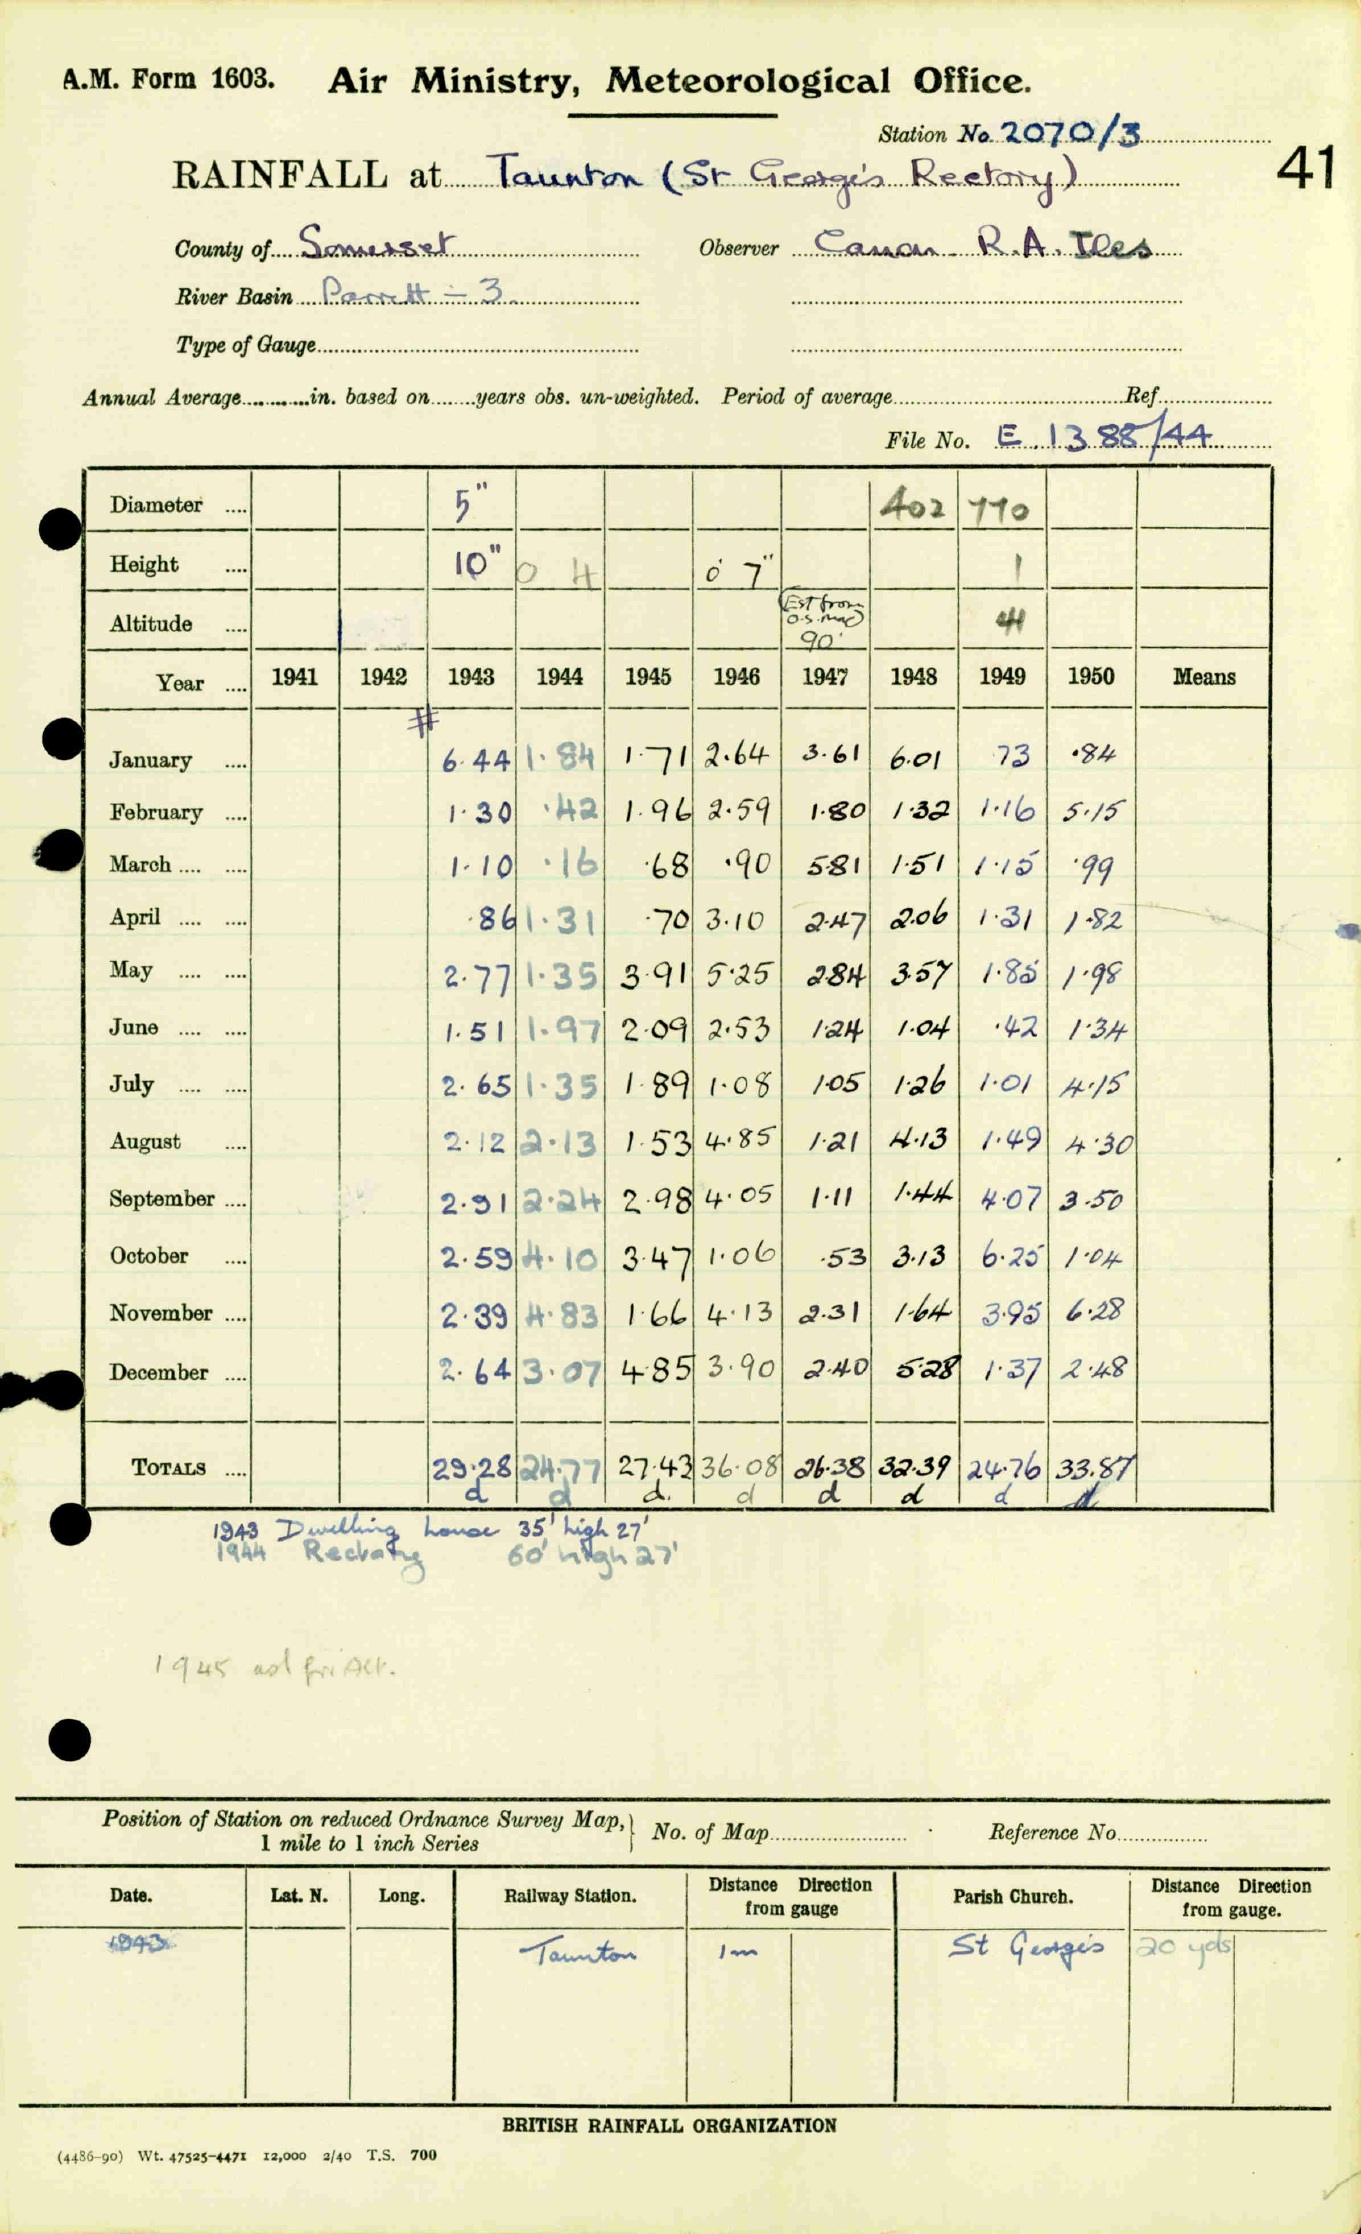 A.M. Form 1603. Air Ministry, Meteorological Office.
Station No. 2070/3
41
RAINFALL at Taunton (St George's Rectory)
County of Somerset Observer Canon R.A. Iles
River Basin Parrett – 3
Type of Gauge
Annual Average in. based on years obs. un-weighted. Period of average Ref.
File No. E. 1388/44
Diameter .... 5" 402 770
Height .... 10" 0 4 0' 7" 1
Altitude .... (Est from O.S. map) 90' 41
Year .... 1941 1942 1943 1944 1945 1946 1947 1948 1949 1950 Means
#
January .... 6.44 1.84 1.71 2.64 3.61 6.01 .73 .84
February .... 1.30 .42 1.96 2.59 1.80 1.32 1.16 5.15
March .... .... 1.10 .16 .68 .90 5.81 1.51 1.15 .99
April .... .... .86 1.31 .70 3.10 2.47 2.06 1.31 1.82
May .... .... 2.77 1.35 3.91 5.25 2.84 3.57 1.85 1.98
June .... .... 1.51 1.97 2.09 2.53 1.24 1.04 .42 1.34
July .... .... 2.65 1.35 1.89 1.08 1.05 1.26 1.01 4.15
August .... 2.12 2.13 1.53 4.85 1.21 4.13 1.49 4.30
September .... 2.91 2.24 2.98 4.05 1.11 1.44 4.07 3.50
October .... 2.59 4.10 3.47 1.06 .53 3.13 6.25 1.04
November .... 2.39 4.83 1.66 4.13 2.31 1.64 3.95 6.28
December .... 2.64 3.07 4.85 3.90 2.40 5.28 1.37 2.48
TOTALS .... 29.28 24.77 27.43 36.08 26.38 32.39 24.76 33.87
d d d. d d d d d
1943 Dwelling house 35' high 27'
1944 Rectory 60' high 27'
1945
Position of Station on reduced Ordnance Survey Map, 1 mile to 1 inch Series } No. of Map Reference No.
Date. Lat. N. Long. Railway Station. Distance Direction from gauge Parish Church. Distance Direction from gauge.
1943 Taunton 1m St George's 20 yds
BRITISH RAINFALL ORGANIZATION
(4486–90) Wt. 47525–4471 12,000 2/40 T.S. 700